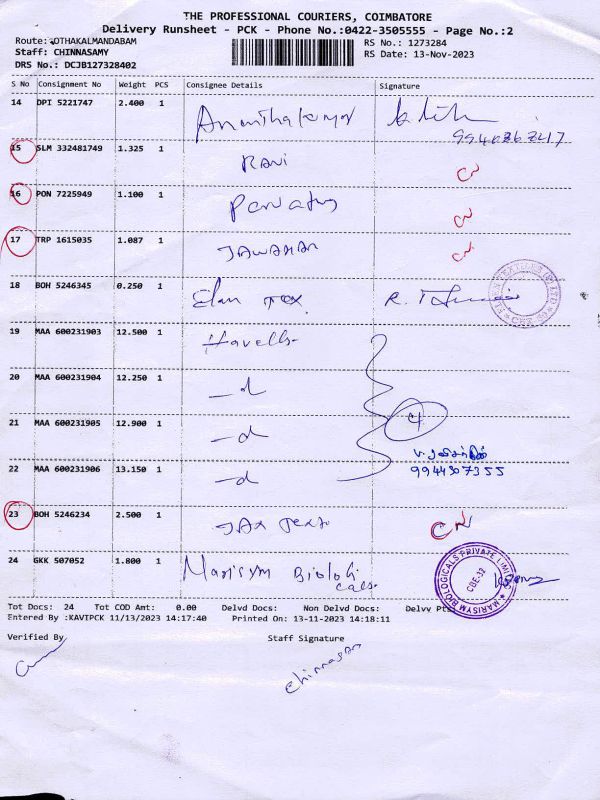 THE PROFESSIONAL COURIERS, COIMBATORE
Delivery Runsheet - PCK - Phone No.:0422-3505555 - Page No.:2
Route: OTHAKALMANDABAM
RS No.: 1273284
Staff: CHINNASAMY
RS Date: 13-Nov-2023
DRS No.: DCJB127328402
S No Consignment No Weight PCS Consignee Details Signature
14 DPI 5221747 2.400 1 Ananthakumar
15 SLM 332481749 1.325 1 RANI CN
16 PON 7225949 1.100 1 Parvathy CN
17 TRP 1615035 1.087 1 JAWAHAR CN
18 BOH 5246345 0.250 1 Elan Tex
19 MAA 600231903 12.500 1 Havells
20 MAA 600231904 12.250 1 -d
21 MAA 600231905 12.900 1 -d
4
22 MAA 600231906 13.150 1 -d 9944307355
23 BOH 5246234 2.500 1 CN
24 GKK 507052 1.800 1 Marisym Biologicals
MARISYM BIOLOGICALS PRIVATE LIMITED
CBE-32
Tot Docs: 24 Tot COD Amt: 0.00 Delvd Docs: Non Delvd Docs: Delvv Pts
Entered By :KAVIPCK 11/13/2023 14:17:40 Printed On: 13-11-2023 14:18:11
Verified By Staff Signature
chinnasam